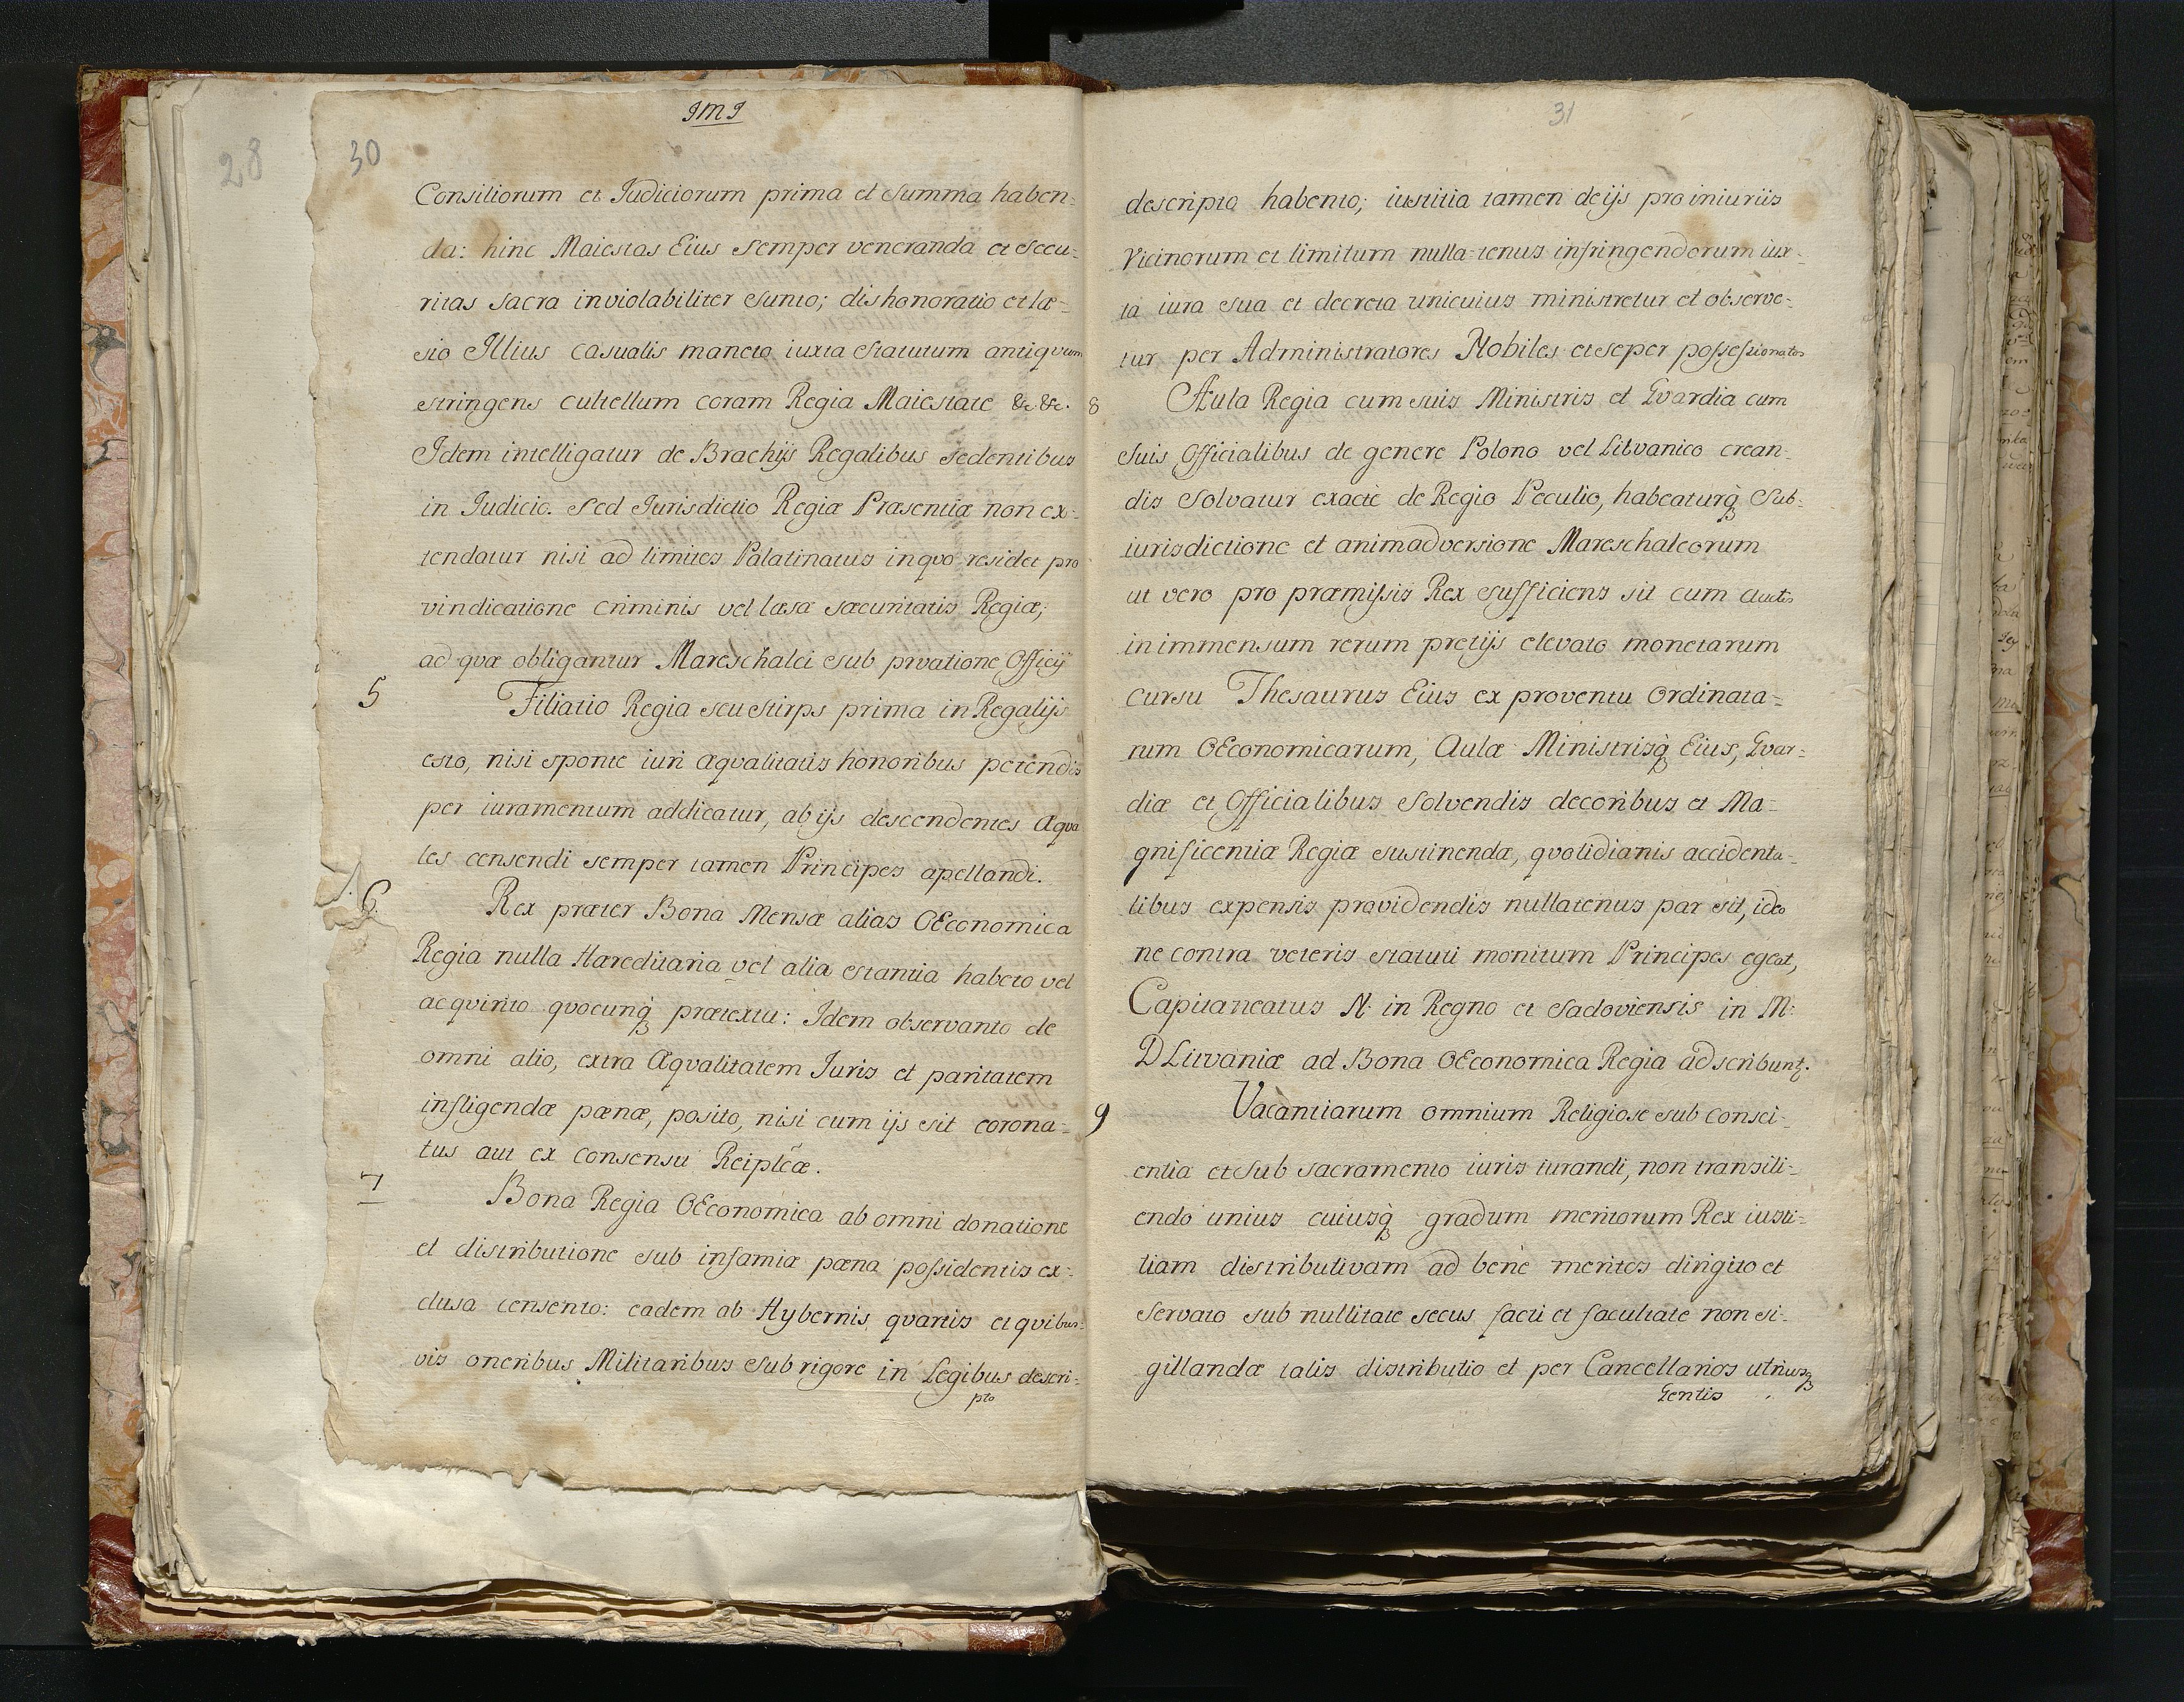 JMJ
28
30
Consiliorum et Judiciorum prima et summa haben=
da: hinc Maiestas Eius semper veneranda et secu=
ritas sacra inviolabiliter sunto; dishonoratio et læ=
sio Illius casualis maneto iuxta statutum antiqvum
stringens cultellum coram Regia Maiestate &c &c.
Idem intelligatur de Brachijs Regalibus sedentibus
in Judicio. sed Jurisdictio Regiæ Præsentiæ non ex=
tendatur nisi ad limites Palatinatus inqvo residet pro
vindicatione criminis vel læsa sæcuritatis Regiæ;
ad qvæ obligantur Mareschalci sub prvatione Officij
5
Filiatio Regia seu stirps prima in Regalijs
esto, nisi sponte iuri æqvalitatis honoribus petendis
per iuramentum addicatur, ab ijs descendentes æqva
les censendi semper tamen Principes apellandi.
6.
Rex præter Bona Mensæ alias OEconomica
Regia nulla Hæreditaria vel alia stantia habeto vel
acqvirito qvocunq; prætextu: Idem observanto de
omni alio, extra æqvalitatem Juris et paritatem
infligendæ pænæ, posito, nisi cum ijs sit corona=
tus aut ex consensu Reiplcæ.
7
Bona Regia OEconomica ab omni donatione
et distributione sub infamiæ pæna possidentis ex=
clusa censento: eadem ab Hybernis qvartis et qvibus=
vis oneribus Militaribus sub rigore in Legibus descri=
pto
31
descripto habento; iustitia tamen de ijs pro iniuriis
Vicinorum et limitum nulla-tenus infringendorum iux=
ta iura sua et decreta unicuius ministretur et observe=
tur per Administratores Nobiles et seper possessionatos
8
Aula Regia cum suis Ministris et Gvardia cum
suis Officialibus de genere Polono vel Litvanico crean=
dis solvatur exactè de Regio Peculio, habeaturq; sub=
iurisdictione et animadversione Mareschalcorum
ut vero pro præmissis Rex sufficiens sit cum auctis
in immensum rerum pretijs elevato monetarum
cursu Thesaurus Eius ex proventu Ordinata=
rum OEconomicarum, Aulæ Ministrisq; Eius, Gvar=
diæ et Officialibus solvendis decoribus et Ma=
gnificentiæ Regiæ sustinendæ, qvotidianis accidenta=
libus expensis prævidendis nullatenus par sit, ideo
ne contra veteris statuti monitum Principes egeat,
Capitaneatus N: in Regno et Sadoviensis in M:
D Litvaniæ ad Bona OEconomica Regia adscribunt.
9
Vacantiarum omnium Religiose sub consci=
entia et sub sacramento iuris iurandi, non transili=
endo unius cuiusq; gradum meritorum Rex iusti=
tiam distributivam ad benè meritos dirigito et
servato sub nullitate secus facti et facultate non si=
gillandæ talis distributio et per Cancellarios utriusq;
Gentis